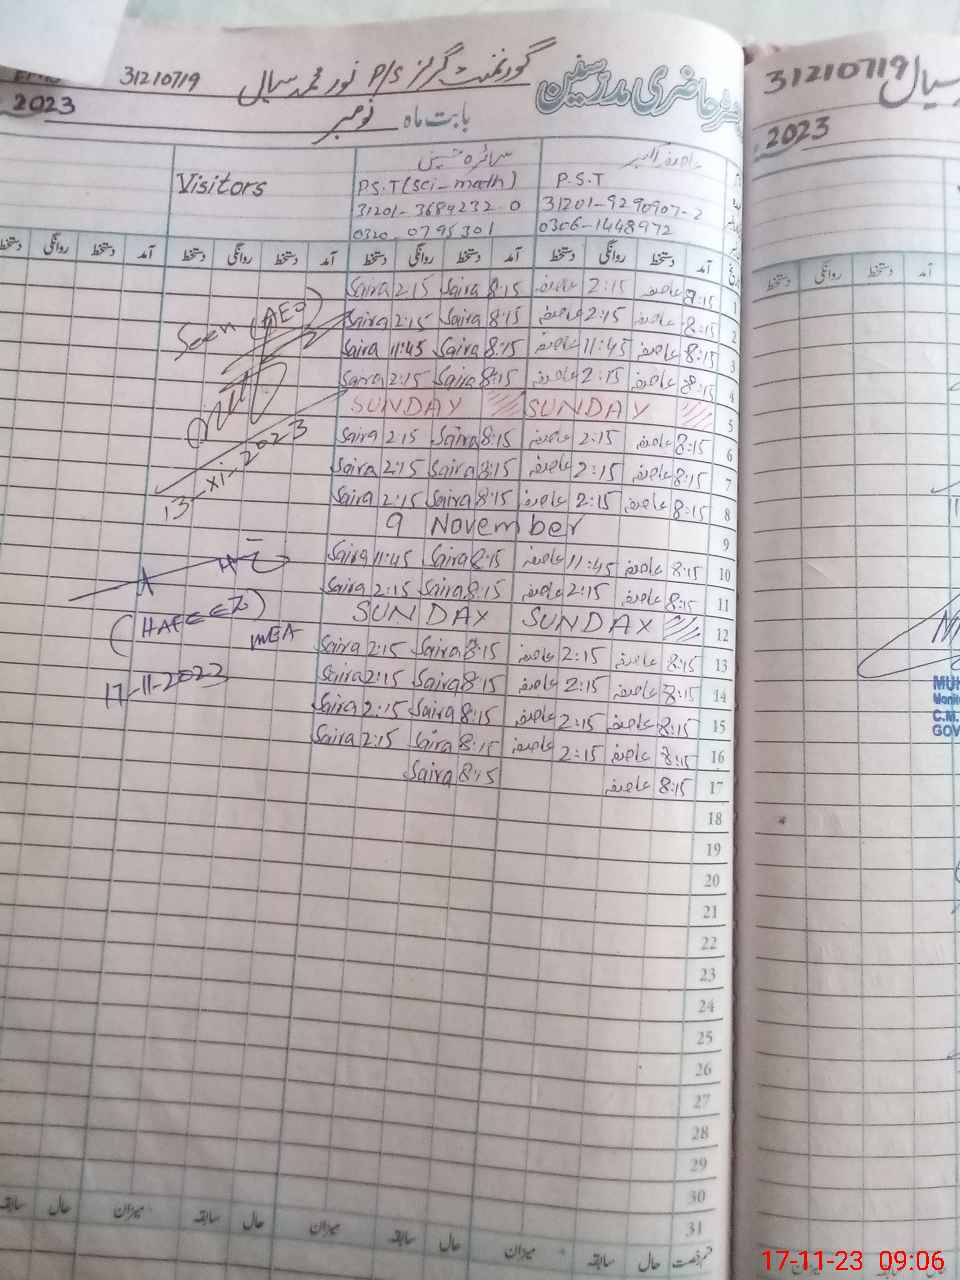 گورنمنٹ گرلز P/S نور محمد سیال 31210719
حاضری مدرسین
بابت ماہ نومبر 2023
31210719 سیال
2023
عاصفہ سائرہ Visitors
P.S.T P.S.T (Sci-math)
31201-9290907-2 31201-3684232-0
0306-1448972 0320-0795301
آمد دستخط روانگی دستخط آمد دستخط روانگی دستخط آمد دستخط روانگی دستخط آمد دستخط روانگی دستخط
1 8:15 عاصفہ 2:15 عاصفہ 8:15 Saira 2:15 Saira
2 8:15 عاصفہ 2:15 عاصفہ 8:15 Saira 2:15 Saira
3 8:15 عاصفہ 11:45 عاصفہ 8:15 Saira 11:45 Saira
4 8:15 عاصفہ 2:15 عاصفہ 8:15 Saira 2:15 Saira
5 SUNDAY SUNDAY
6 8:15 عاصفہ 2:15 عاصفہ 8:15 Saira 2:15 Saira
7 8:15 عاصفہ 2:15 عاصفہ 8:15 Saira 2:15 Saira
8 8:15 عاصفہ 2:15 عاصفہ 8:15 Saira 2:15 Saira
9 9 November
10 8:15 عاصفہ 11:45 عاصفہ 8:15 Saira 11:45 Saira
11 8:15 عاصفہ 2:15 عاصفہ 8:15 Saira 2:15 Saira
12 SUNDAY SUNDAY
13 8:15 عاصفہ 2:15 عاصفہ 8:15 Saira 2:15 Saira
14 8:15 عاصفہ 2:15 عاصفہ 8:15 Saira 2:15 Saira
15 8:15 عاصفہ 2:15 عاصفہ 8:15 Saira 2:15 Saira
16 8:15 عاصفہ 2:15 عاصفہ 8:15 Saira 2:15 Saira
17 8:15 عاصفہ 8:15 Saira
18
19
20
21
22
23
24
25
26
27
28
29
30
31
Seen (AEO)
13-xi-2023
MEA
17-11-2023
حال سابقہ میزان حال سابقہ میزان حال سابقہ میزان حال سابقہ
آمد دستخط روانگی دستخط
MUH
Monito
C.M.
GOV
17-11-23 09:06